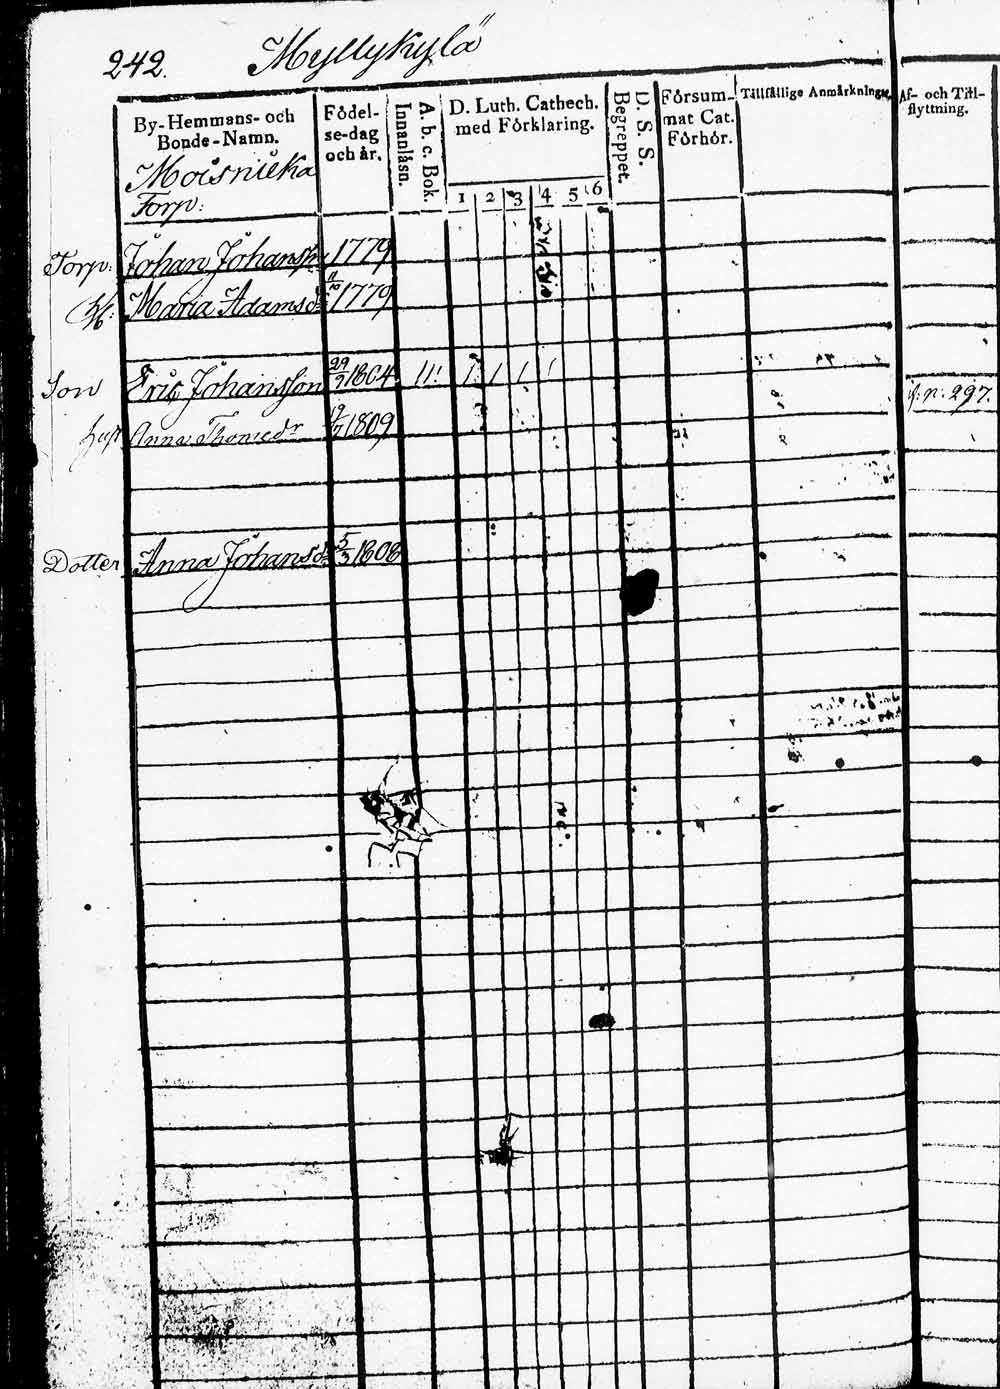 242. Myllykylä
By-Hemmans- och
Bonde-Namn.
Födel-
se-dag
och år.
Innanläsn.
A. b. c. Bok.
D. Luth. Cathech.
med Förklaring.
1 2 3 4 5 6
D. S. S.
Begreppet.
Försum-
mat Cat.
Förhör.
Tillfällige Anmärkningar.
Af- och Till-
flyttning.
Moisnieka
Torp:
Torp: Johan Johanss 1779
H: Maria Adamsd 11/10 1779
Son Eric Johansson 29/9 1804 11! 1 1 1 1 n: 297.
hust Anna Thomedr 19/7 1809
Dotter Anna Johansd 5/3 1808